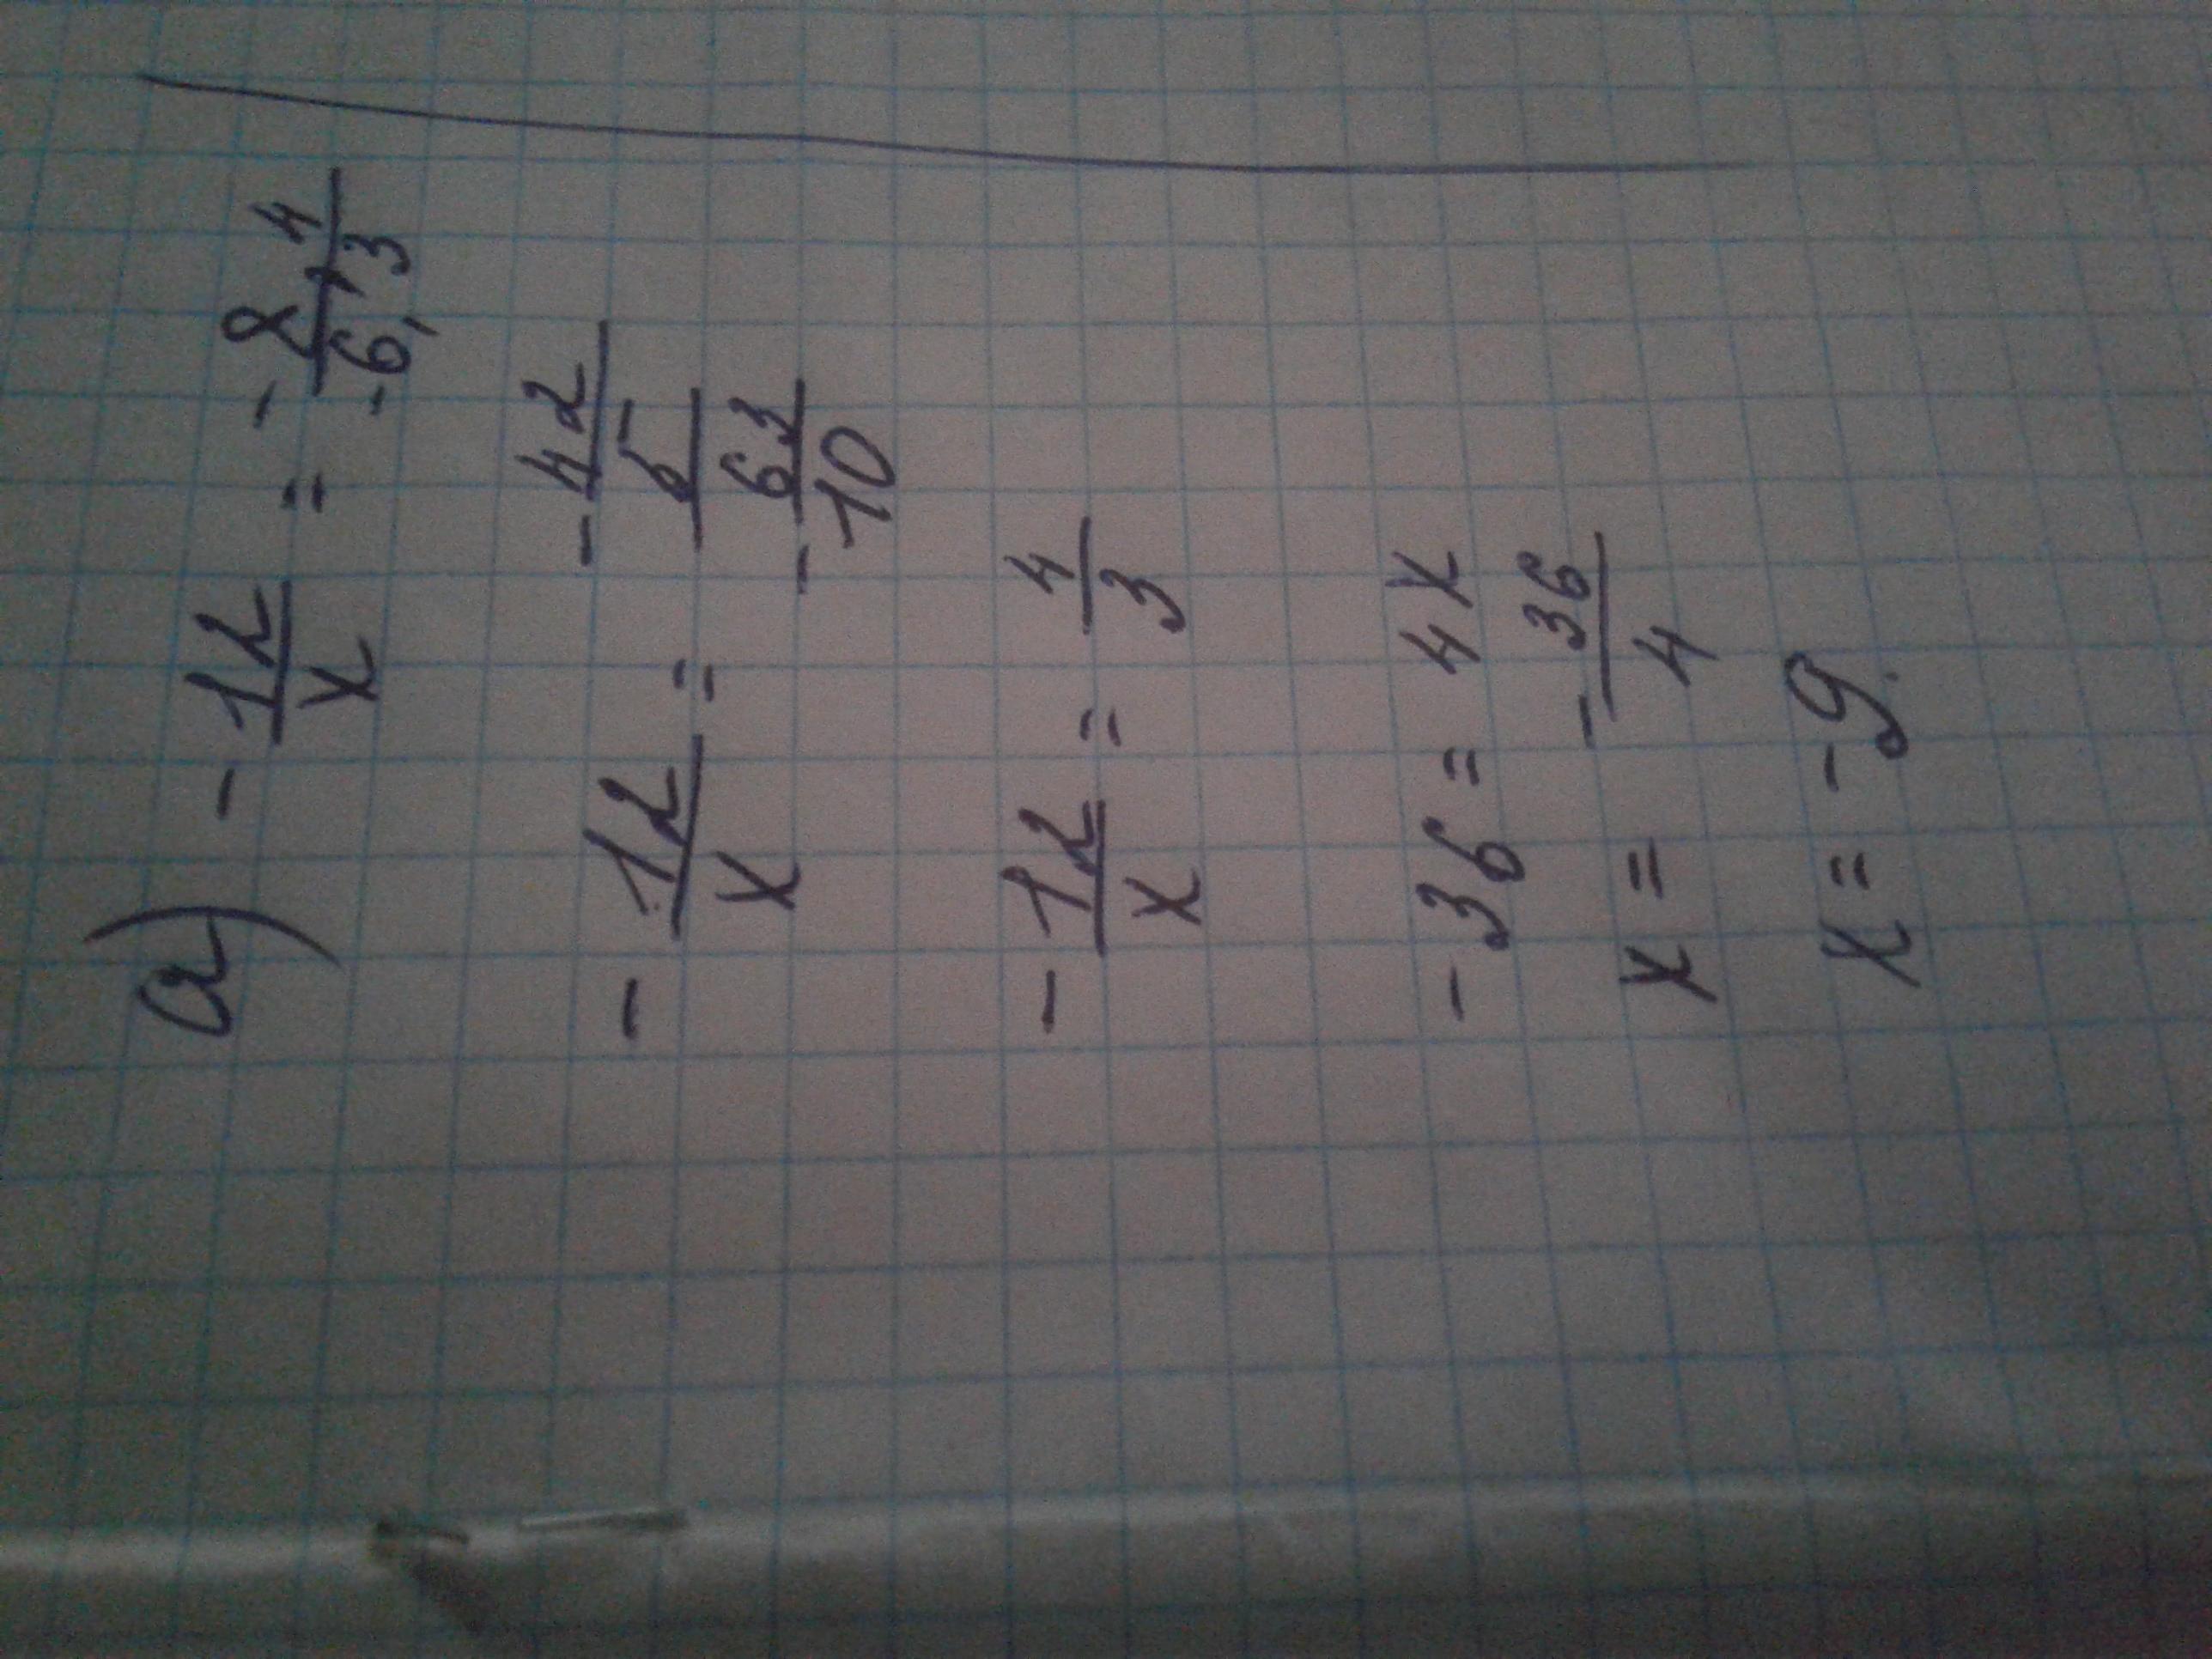 a) -12/x = -8,4/-6,3
-12/x = (-42/5)/(-63/10)
-12/x = 4/3
-36 = 4x
x = -36/4
x = -9